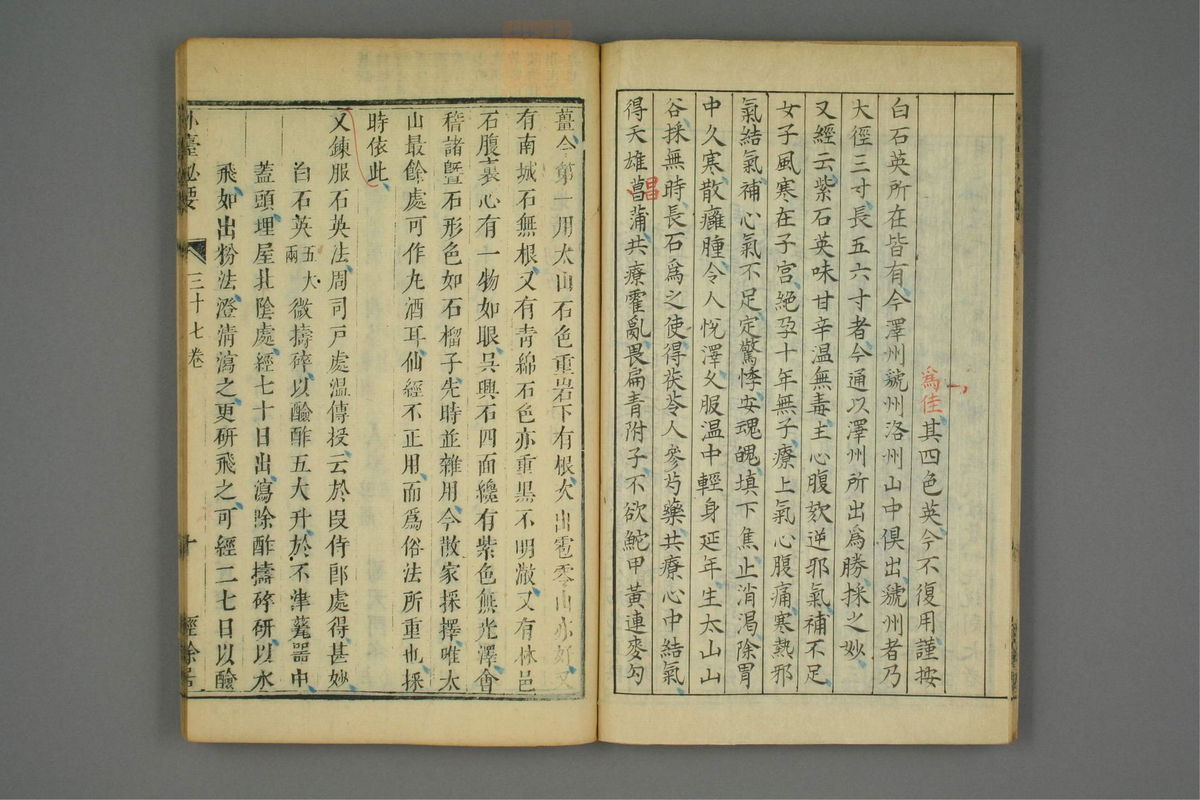 為佳其四色英今不復用謹按
白石英所在皆有今澤州虢州洛州山中俱出虢州者乃
大徑三寸長五六寸者今通以澤州所出爲勝採之妙
又經云紫石英味甘辛温無毒主心腹欬逆邪氣補不足
女子風寒在子宮絶孕十年無子療上氣心腹痛寒熱邪
氣結氣補心氣不足定驚悸安魂魄填下焦止消渴除胃
中久寒散癰腫令人悅澤久服温中輕身延年生太山山
谷採無時長石爲之使得茯苓人參芍藥共療心中結氣
得天雄菖蒲共療霍亂畏扁青附子不欲鮀甲黃連麥勾
昌
薑今第一用太山石色重㟁下有根次出雹零山亦好又
有南城石無根又有青綿石色亦重黒不明澈又有林邑
石腹裏必有一物如眼吳興石四面纔有紫色無光澤會
稽諸暨石形色如石榴子先時並雜用今散家採擇唯太
山最餘處可作丸酒耳仙經不正用而爲俗法所重也採
時依此
又鍊服石英法周司戸處温傳授云於段侍郎處得甚妙
白石英五大兩微擣碎以醶酢五大升於不津甆器中
蓋頭埋屋北陰處經七十日出瀉除酢擣碎研以水
飛如出粉法澄清瀉之更研飛之可經二七日以醶
外臺祕要 三十七卷 十 經餘居